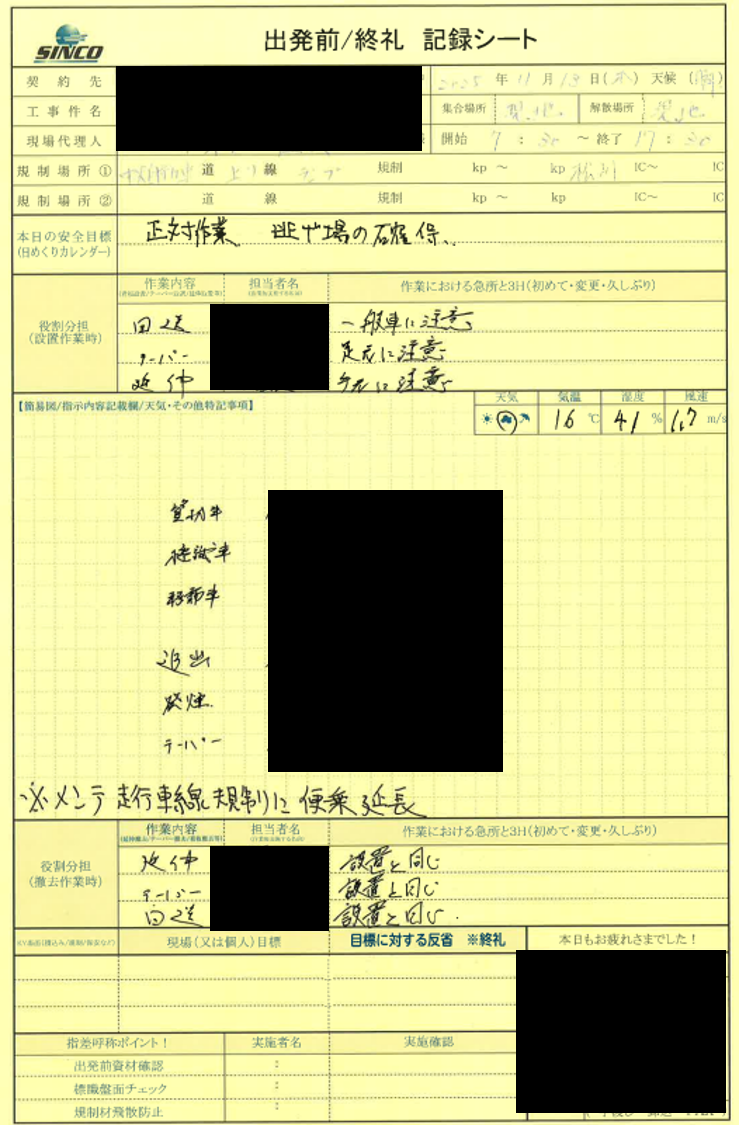 SINCO
出発前/終礼 記録シート
契約先 2025年11月13日(木) 天候(晴)
工事件名 集合場所 現地 解散場所 現地
現場代理人 開始 7:30 ～ 終了 17:30
規制場所① 道 上り 線 規制 kp ～ kp 松川 IC～ IC
規制場所② 道 線 規制 kp ～ kp IC～ IC
本日の安全目標 正対作業 逃げ場の確保
(日めくりカレンダー)
作業内容 担当者名 作業における急所と3H(初めて・変更・久しぶり)
役割分担
(設置作業時)
回送 一般車に注意
テーパー 足元に注意
延伸 手元に注意
【簡易図/指示内容記載欄/天気・その他特記事項】
天気 気温 湿度 風速
16 ℃ 41 % 1.7 m/s
貸切車
標識車
移動車
追出
発煙
テーパー
※メンテ 走行車線規制に便乗延長
作業内容 担当者名 作業における急所と3H(初めて・変更・久しぶり)
役割分担
(撤去作業時)
延伸 設置と同じ
テーパー 設置と同じ
回送 設置と同じ
現場(又は個人)目標 目標に対する反省 ※終礼 本日もお疲れさまでした！
指差呼称ポイント！ 実施者名 実施確認
出発前資材確認 :
標識盤面チェック :
規制材飛散防止 :